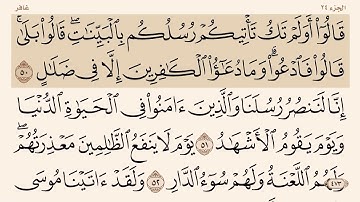 الجزء ٢٤ غافر
قَالُوٓا۟ أَوَلَمْ تَكُ تَأْتِيكُمْ رُسُلُكُم بِٱلْبَيِّنَـٰتِ ۖ قَالُوا۟ بَلَىٰ ۚ
قَالُوا۟ فَٱدْعُوا۟ ۗ وَمَا دُعَـٰٓؤُا۟ ٱلْكَـٰفِرِينَ إِلَّا فِى ضَلَـٰلٍ ٥٠
إِنَّا لَنَنصُرُ رُسُلَنَا وَٱلَّذِينَ ءَامَنُوا۟ فِى ٱلْحَيَوٰةِ ٱلدُّنْيَا
وَيَوْمَ يَقُومُ ٱلْأَشْهَـٰدُ ٥١ يَوْمَ لَا يَنفَعُ ٱلظَّـٰلِمِينَ مَعْذِرَتُهُمْ ۖ
وَلَهُمُ ٱللَّعْنَةُ وَلَهُمْ سُوٓءُ ٱلدَّارِ ٥٢ وَلَقَدْ ءَاتَيْنَا مُوسَى
٤٧٣